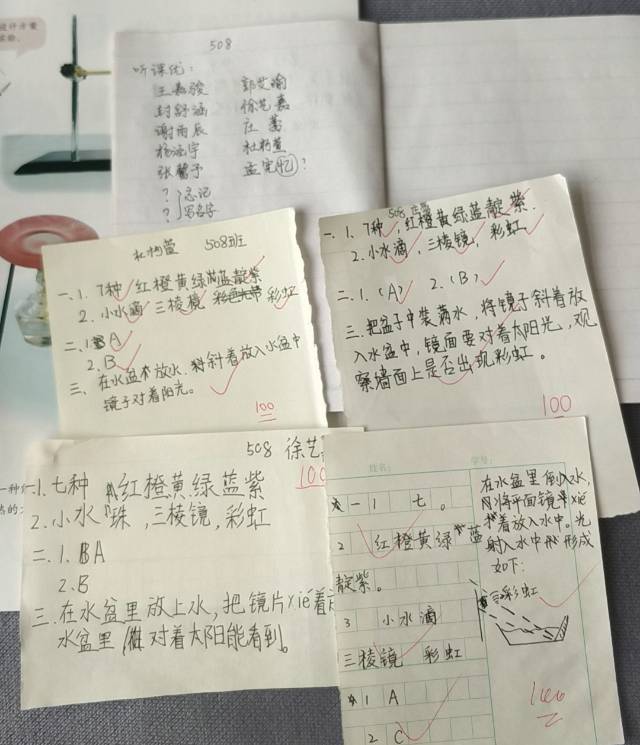 508
听课优：
王嘉骏 郭艾瑜
封舒涵 徐艺嘉
谢雨辰
杨涵宇 杜柯萱
张馨予 孟宪忆？
？ 忘记
？ 写名字
杜柯萱 508班
一、1. 7种 红橙黄绿蓝靛紫
2. 小水滴 三棱镜 彩虹
二、1. A
2. B
三、在水盆中放水，将斜着放入水盆中
镜子对着阳光。
100
508
一、1. 7种，红橙黄绿蓝靛紫.
2. 小水滴，三棱镜，彩虹
二、1.（A） 2.（B）
三、把盆子中装满水，将镜子斜着放
入水盆中，镜面要对着太阳光，观
察墙面上是否出现彩虹。
100
508 徐艺
100
一1. 七种 红橙黄绿蓝紫
2. 小水珠，三棱镜，彩虹
二、1. BA
2. B
三、在水盆里放上水，把镜片xié着
水盆里 对着太阳能看到。
姓名： 学号：
一 1 七。
2 红橙黄绿蓝
靛紫。
3 小水滴
三棱镜 彩虹
1 A
2 C
在水盆里倒入水，
将平面镜xié
着放入水中。光
射入水中形成
如下：
彩虹
100